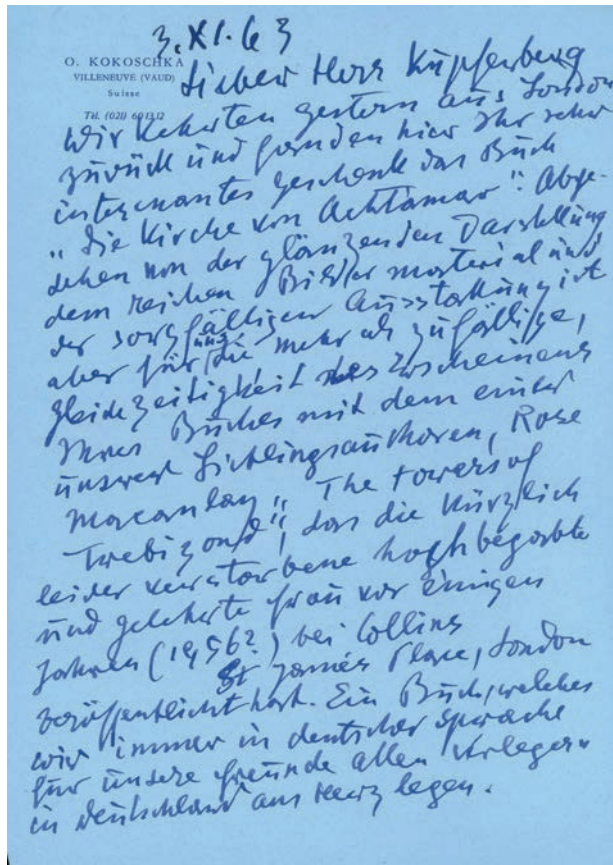 3.XI.63
O. KOKOSCHKA
VILLENEUVE (VAUD)
Suisse
Tél. (021) 60 13 12
Lieber Herr Kupferberg
Wir kehrten gestern aus London
zurück und fanden hier Ihr sehr
interessantes Geschenk das Buch
„Die Kirche von Achtamar". Abge-
sehen von der glänzenden Darstellung
dem reichen Bilder material und
der sorgfältigen Ausstattung ist
aber für uns die mehr als zufällige,
gleichzeitigkeit des Erscheinens
Ihres Buches mit dem einer
unserer Lieblingsauthoren, Rose
Macaulay „The towers of
Trebizond", das die kürzlich
leider verstorbene hochbegabte
und gelehrte Frau vor einigen
Jahren (1956?) bei Collins
St James Place, London
veröffentlicht hat. Ein Buch, welches
wir immer in deutscher Sprache
für unsere Freunde allen Verlegern
in Deutschland ans Herz legen.